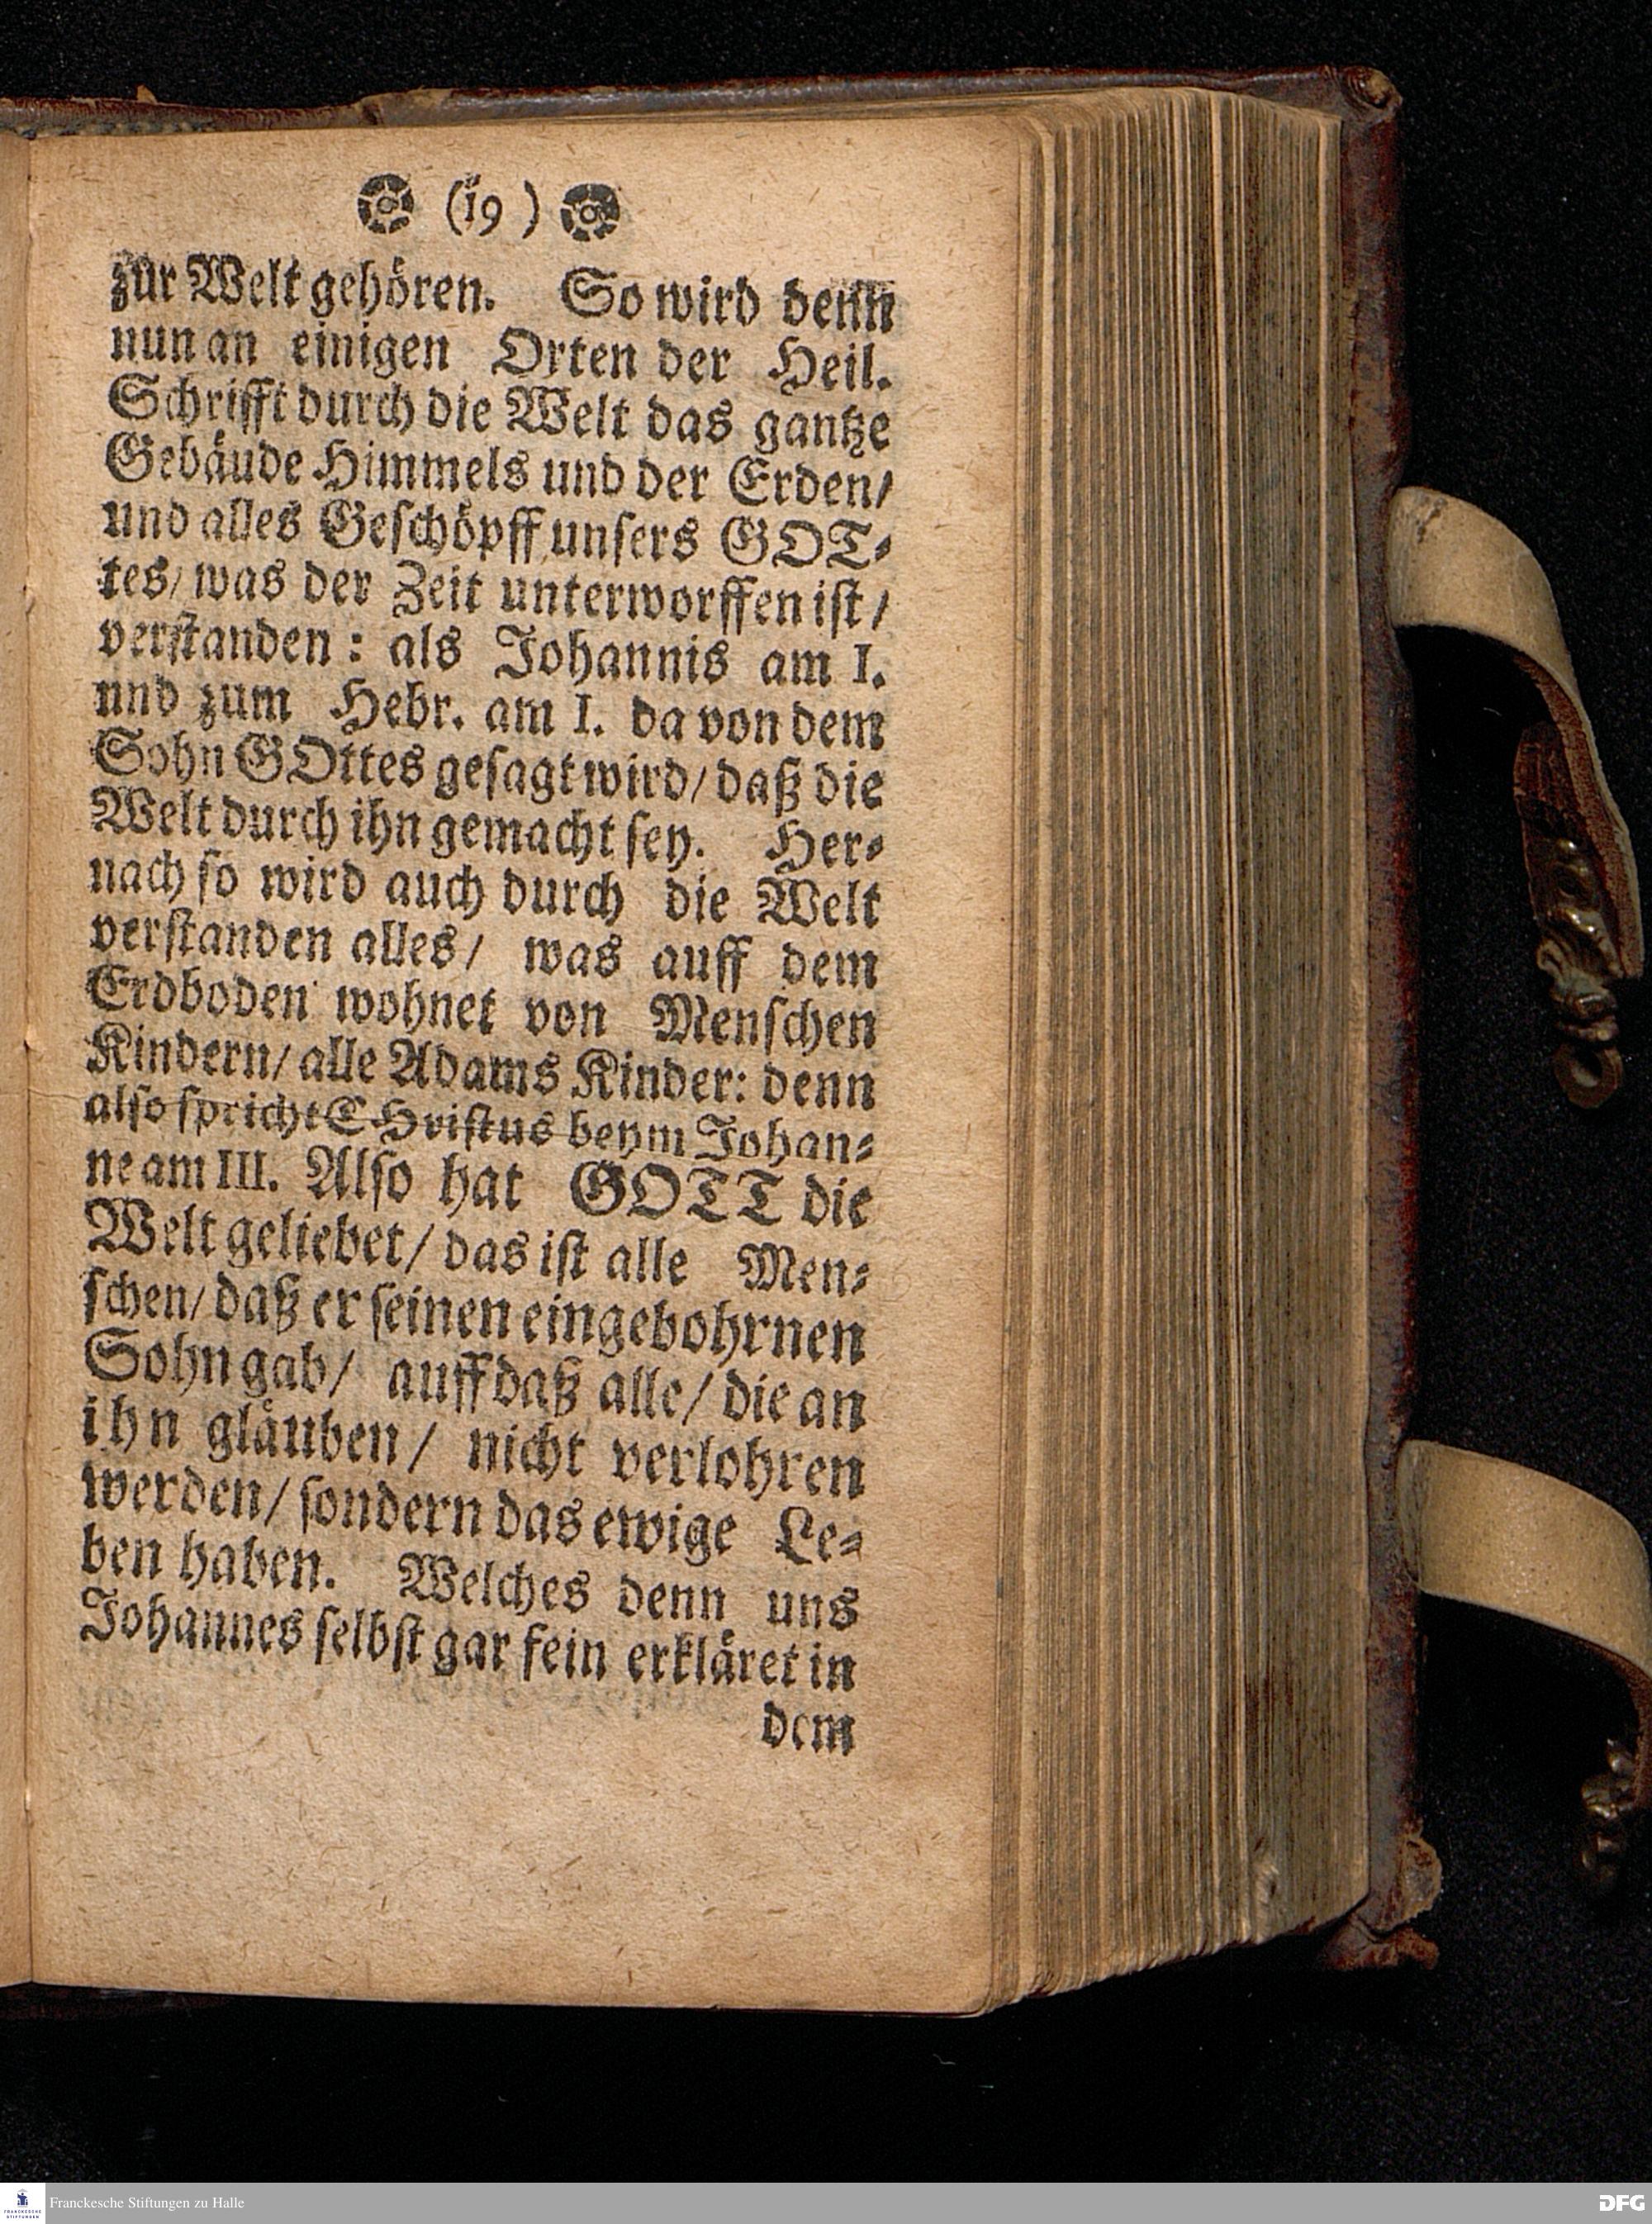 (19)
zur Welt gehören. So wird denn
nun an einigen Orten der Heil.
Schrifft durch die Welt das gantze
Gebäude Himmels und der Erden/
und alles Geschöpff unsers GOT-
tes/ was der Zeit unterworffen ist/
verstanden: als Johannis am I.
und zum Hebr. am I. da von dem
Sohn GOttes gesagt wird/ daß die
Welt durch ihn gemacht sey. Her-
nach so wird auch durch die Welt
verstanden alles/ was auff dem
Erdboden wohnet von Menschen
Kindern/ alle Adams Kinder: denn
also spricht CHristus beym Johan-
ne am III. Also hat GOTT die
Welt geliebet/ das ist alle Men-
schen/ daß er seinen eingebohrnen
Sohn gab/ auff daß alle/ die an
ihn gläuben/ nicht verlohren
werden/ sondern das ewige Le-
ben haben. Welches denn uns
Johannes selbst gar fein erkläret in
dem
Franckesche Stiftungen zu Halle
DFG